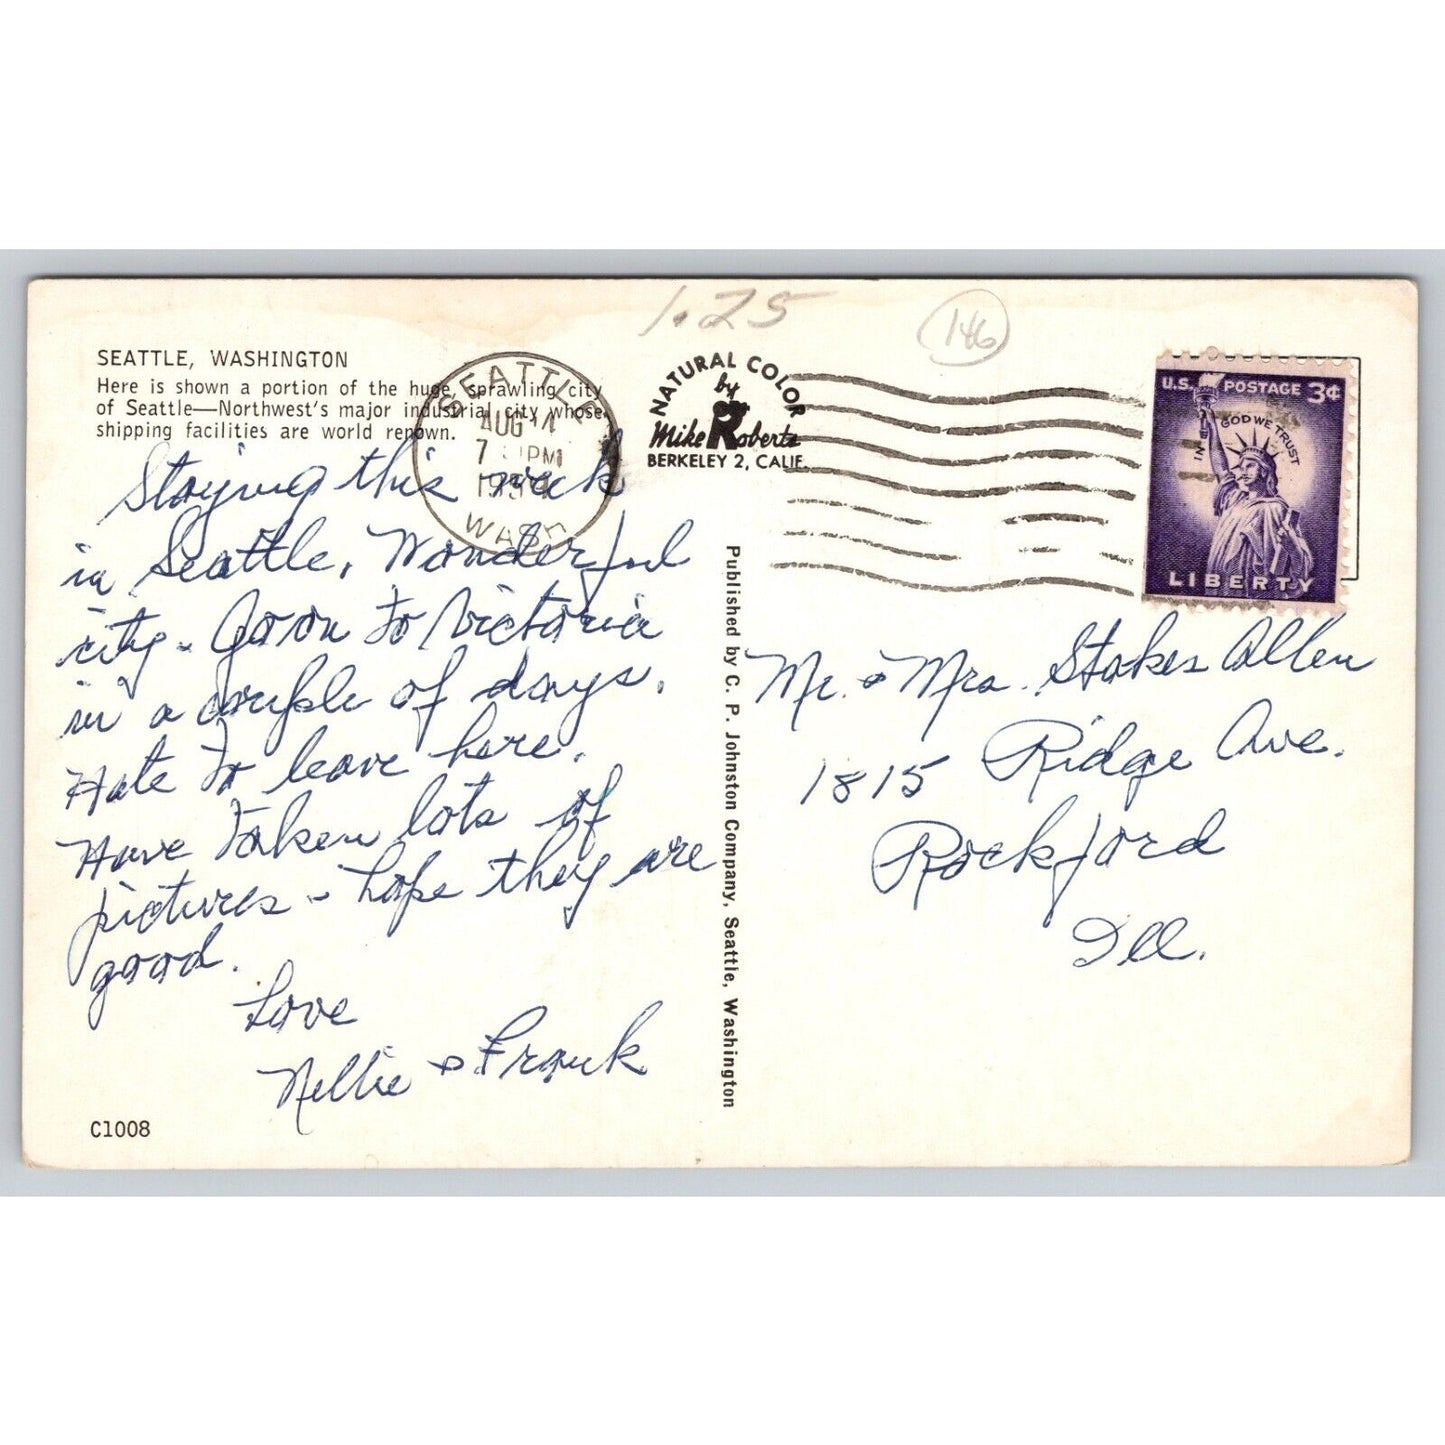 1.25
146
SEATTLE, WASHINGTON
Here is shown a portion of the huge, sprawling city
of Seattle—Northwest's major industrial city whose
shipping facilities are world renown.
SEATTLE
AUG
7 PM
WASH
NATURAL COLOR
by
Mike Roberts
BERKELEY 2, CALIF.
U.S. POSTAGE 3¢
IN GOD WE TRUST
LIBERTY
Staying this week
in Seattle. Wonderful
city - Goon to Victoria
in a couple of days.
Hate to leave here.
Have taken lots of
pictures - hope they are
good.
Love
Nellie & Frank
C1008
Published by C. P. Johnston Company, Seattle, Washington
Mr. & Mrs. Stokes Allen
1815 Ridge Ave.
Rockford
Ill.